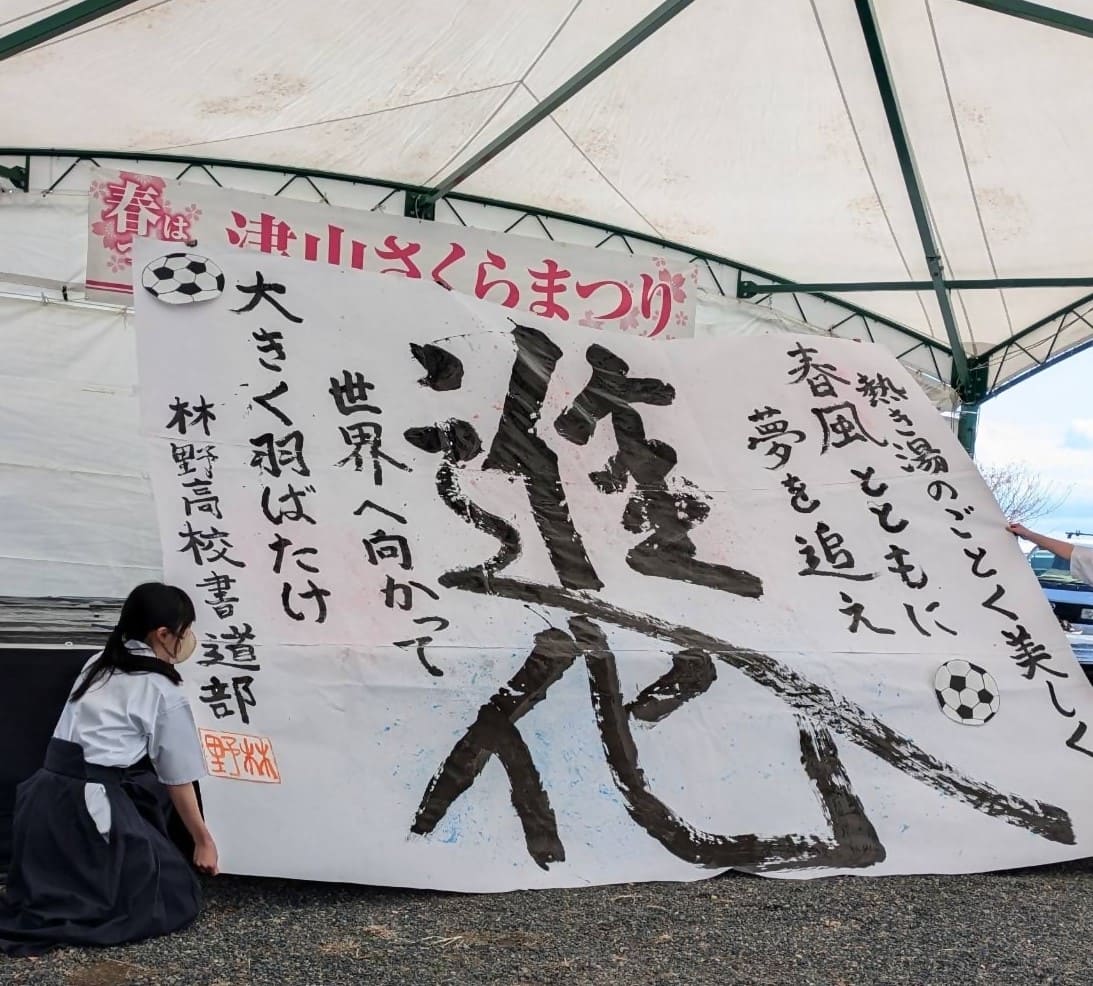 春は
津山さくらまつり
熱き湯のごとく美しく
春風とともに
夢を追え
進化
世界へ向かって
大きく羽ばたけ
林野高校書道部
林野